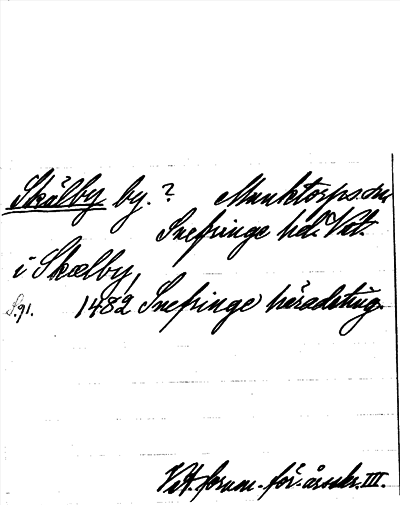 Skälby by. ? Munktorps sn
Snefringe hd. Vstl.
i Skælby,
S. 91. 1482 Snefringe häradsting.
Vstl. fornm.-för. årsskr. III.